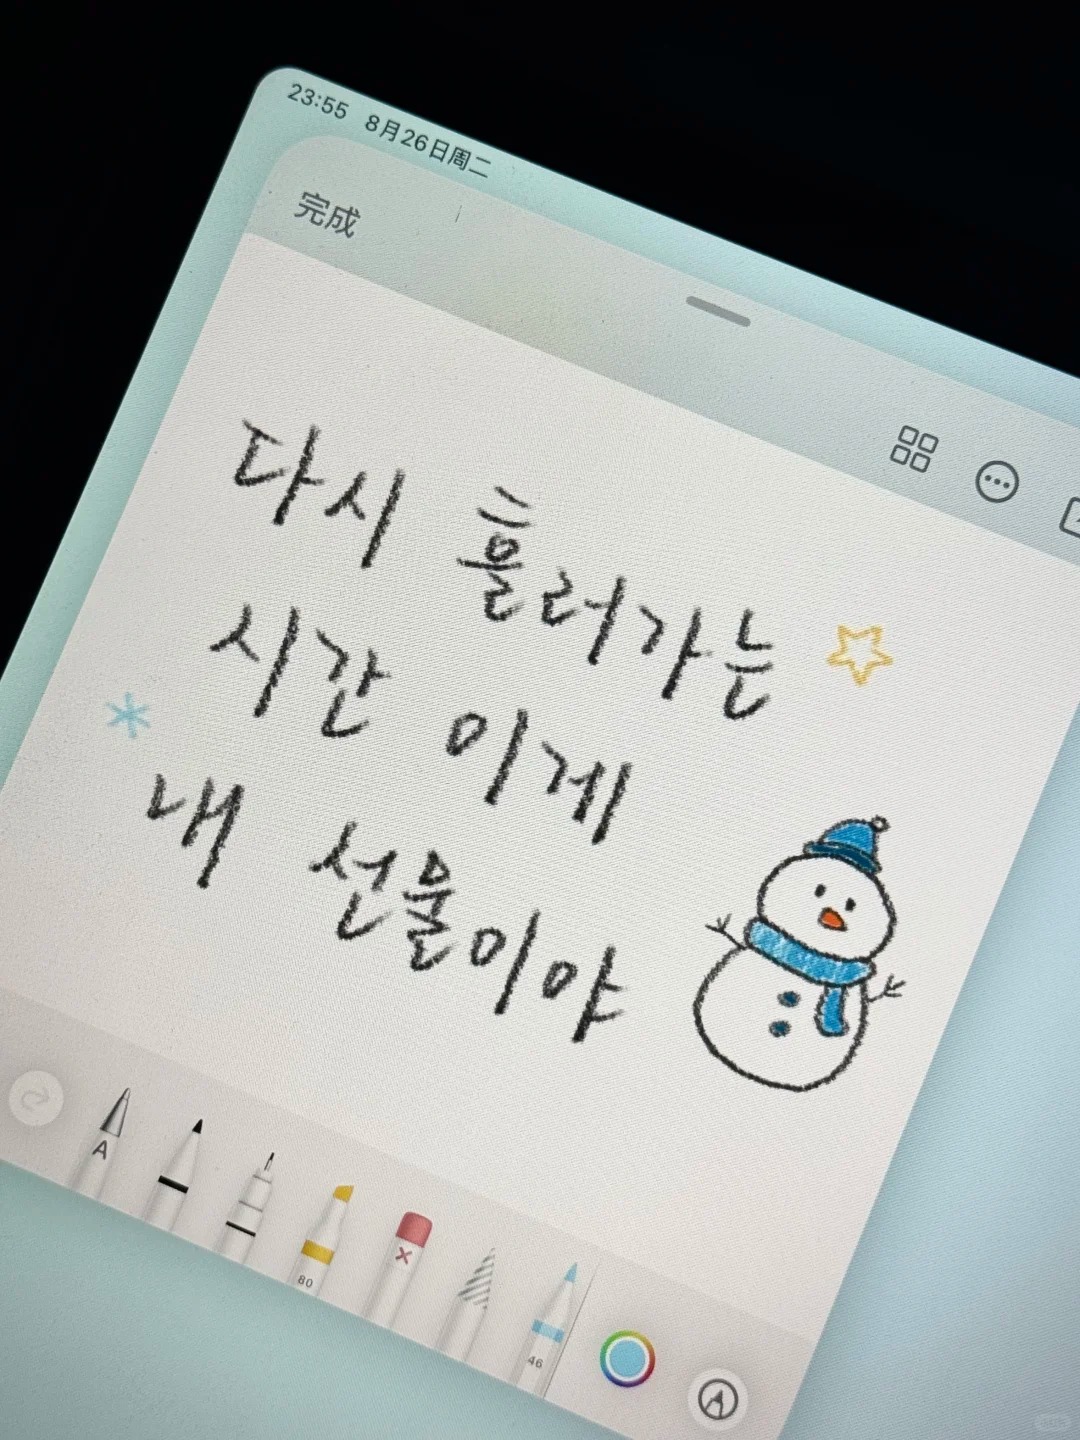 23:55 8月26日周二
完成
다시 흘러가는
시간 이게
내 선물이야
A
80
46